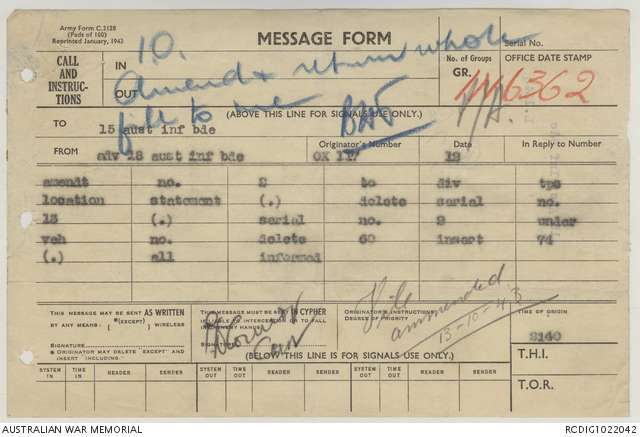 Army Form C.2128
(Pads of 100)
Reprinted January, 1943
MESSAGE FORM
Serial No.
CALL
AND
INSTRUC-
TIONS
IN
10.
Amend & return whole
OUT
file to me
No. of Groups
GR.
OFFICE DATE STAMP
IN6362
N/A.
(ABOVE THIS LINE FOR SIGNALS USE ONLY.)
TO 15 aust inf bde
FROM adv 18 aust inf bde
Originator's Number
OX 177
Date
12
In Reply to Number
amendt no. 2 to div tps
location statement (.) delete serial no.
13 (.) serial no. 2 under
veh no. delete 60 insert 74
(.) all informed
THIS MESSAGE MAY BE SENT AS WRITTEN
BY ANY MEANS. *(EXCEPT) WIRELESS
SIGNATURE
* ORIGINATOR MAY DELETE "EXCEPT" AND
INSERT "INCLUDING."
THIS MESSAGE MUST BE SENT IN CYPHER
SIGNATURE
Capt
ORIGINATOR'S INSTRUCTIONS
DEGREE OF PRIORITY
File
ammended
13-10-43
TIME OF ORIGIN
2140
(BELOW THIS LINE IS FOR SIGNALS USE ONLY.)
T.H.I.
T.O.R.
SYSTEM IN TIME IN READER SENDER SYSTEM OUT TIME OUT READER SENDER SYSTEM OUT TIME OUT READER SENDER
AUSTRALIAN WAR MEMORIAL
RCDIG1022042